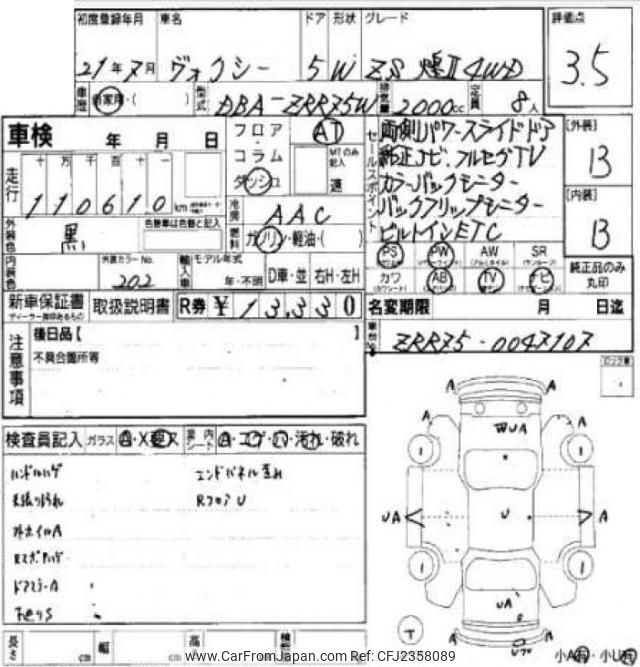 初度登録年月 車名 ドア 形状 グレード 評価点
21年7月 ヴォクシー 5 W ZS 煌Ⅱ 4WD 3.5
車歴 自家用・( ) 型式 DBA-ZRR75W 排気量 2000cc 定員 8人
車検 年 月 日 フロア AT セールスポイント 両側パワースライドドア [外装]
コラム MTのみ記入 純正ナビ フルセグTV B
走行 十 万 千 百 十 一 ダッシュ 速 カラーバックモニター
110610km 冷房 AAC バックフリップモニター [内装]
外装色 黒 色替車は色替と記入 燃料 ガソリン・軽油・( ) ビルトインETC B
PS PW AW SR
内装色 外装カラーNo. 202 輸入車 モデル年式 年・不明 D車・並 右H・左H カワ AB TV ナビ 純正品のみ丸印
新車保証書 取扱説明書 R券 ¥ 13,330 名変期限 月 日迄
ディーラー捺印あるもの
注意事項 後日品【 】 車台No. ZRR75-0047107
不具合箇所等
検査員記入 ガラス A・X 室内 シート A・コゲ・ ・汚れ・破れ
ハンドルハゲ エンドパネル歪み
RフロアU
外ホイルA
ドアミラーA
下廻りS
A A
A A
WUA
1 1
UA U A
1 1
UA
T
A A
長さ cm 幅 cm 高
小A 小U
www.CarFromJapan.com Ref: CFJ2358089